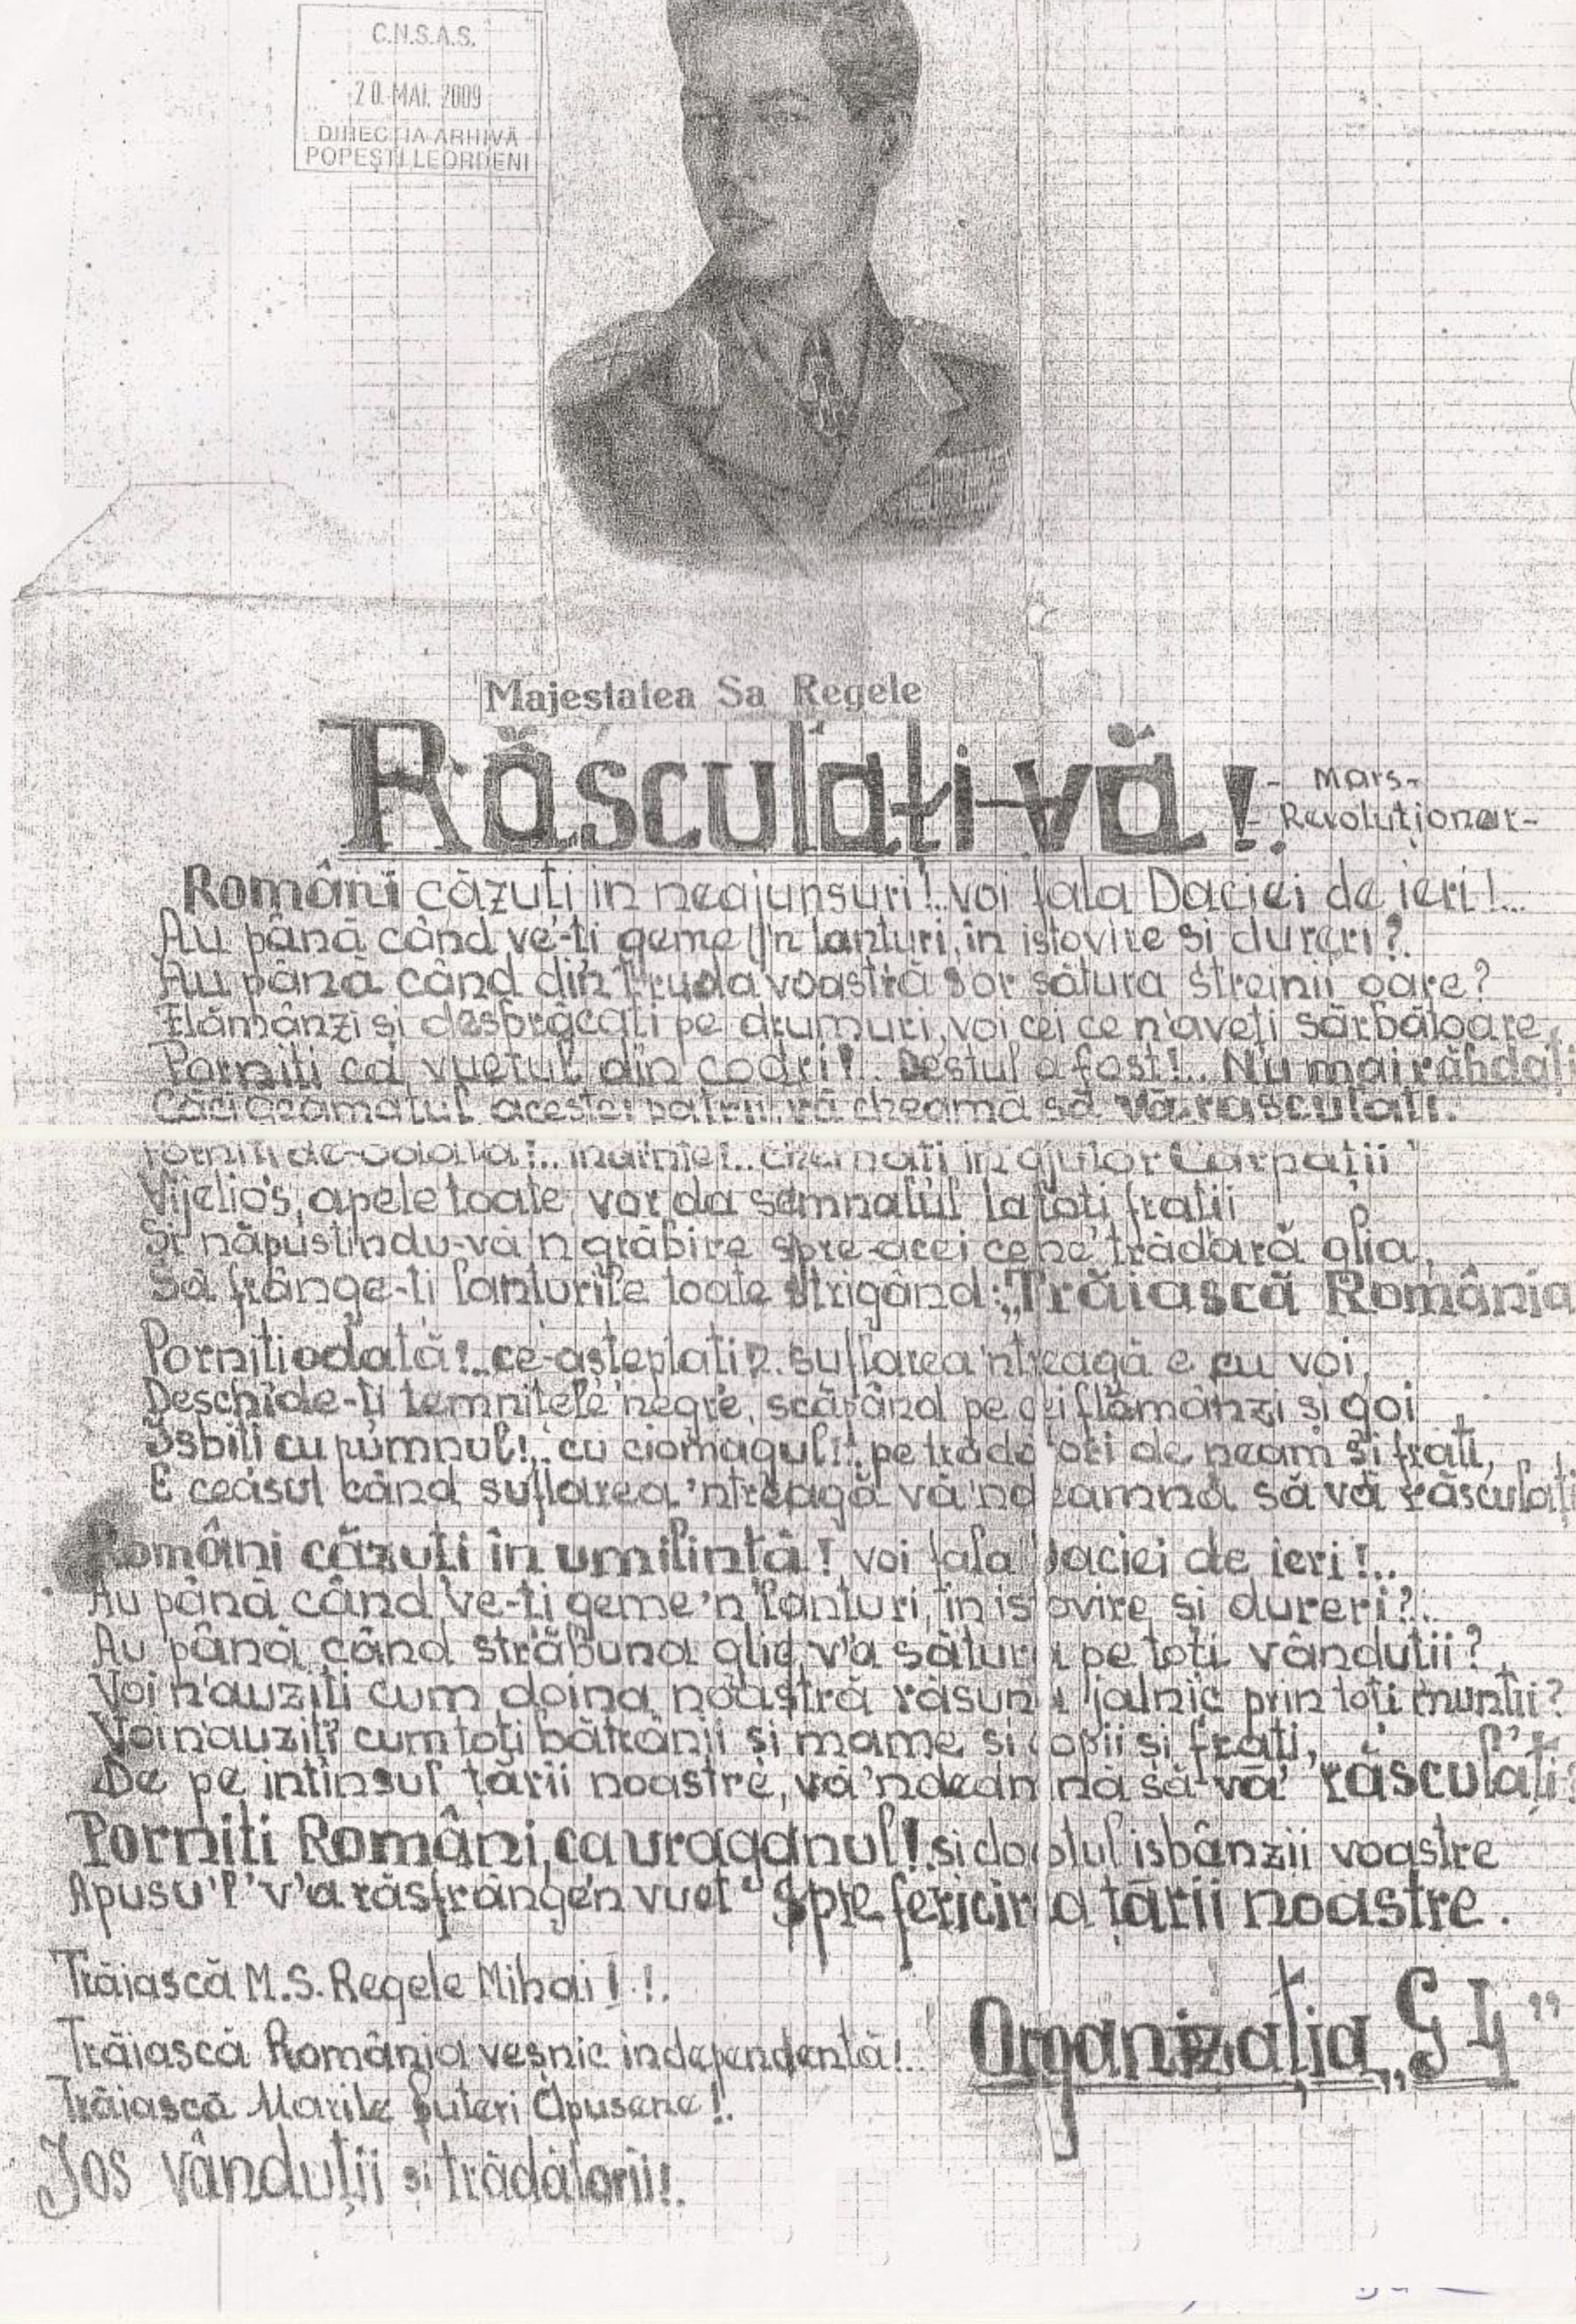 C.N.S.A.S.
20. MAI. 2009
DIRECȚIA ARHIVĂ
POPEȘTI LEORDENI
Majestatea Sa Regele
Răsculați-vă!
- Mars-
- Revoluționar-
Români căzuți in neajunsuri!.. voi fala Daciei de ieri!...
Au până când ve-ți geme 'n lanturi, în istovire si dureri?.
Au până când din truda voastră s'or sătura streinii oare?
Flămânzi si desbrăcați pe drumuri, voi cei ce n'aveți sărbătoare,
Porniti ca vuetul din codri!.. Destul a fost!.. Nu mai răbdați
Căci geamătul acestei patrii, vă cheamă să vă răsculați.
Porniti de-odată!.. inarmeț.. chemați in ajutor Carpații
Vijelios, apele toate, vor da semnalul la toti fratii
Si năpustindu-vă 'n grăbire spre-acei ce ne trădară glia,
Să frânge-ti lanturile toate strigând: „Trăiască România
Porniti odată!.. ce-așteptati?.. suflarea 'ntreagă e cu voi,
Deschide-ti temnitele negre, scăpând pe cei flămânzi si goi
Isbiti cu pumnul!.. cu ciomagul!.. pe trădători de neam si frati,
E ceasul când suflarea 'ntreagă vă 'ndeamnă să vă răsculați
Români căzuti în umilintă! voi fala Daciei de ieri!...
Au până când ve-ti geme 'n lanturi, in istovire si dureri?..
Au până când străbuna glie v'a sătura pe toti vândutii?
Voi n'auziti cum doina noastră răsună jalnic prin toti muntii?
Voi n'auziti cum toți bătrânii si mame si copii si frați,
De pe intinsul țării noastre, vă 'ndeamnă să vă răsculați?
Porniti Români, ca uraganul! si clocotul isbânzii voastre
Apusu'l v'a răsfrânge'n vuet spre fericirea tării noastre.
Trăiască M.S. Regele Mihai!.!.
Trăiască România veșnic independentă!..
Trăiască Marile puteri Apusene!.
Jos vânduții și trădătorii!.
Organizația „G 4”